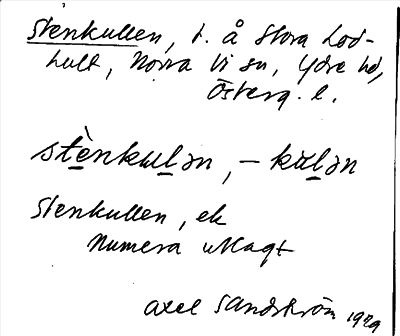 Stenkullen, t. å Stora Lod-
hult, Norra Vi sn, Ydre hd,
Österg. l.
stènkulən, – kùlən
Stenkullen, ek
Numera utlagt
Axel Sandström 1929